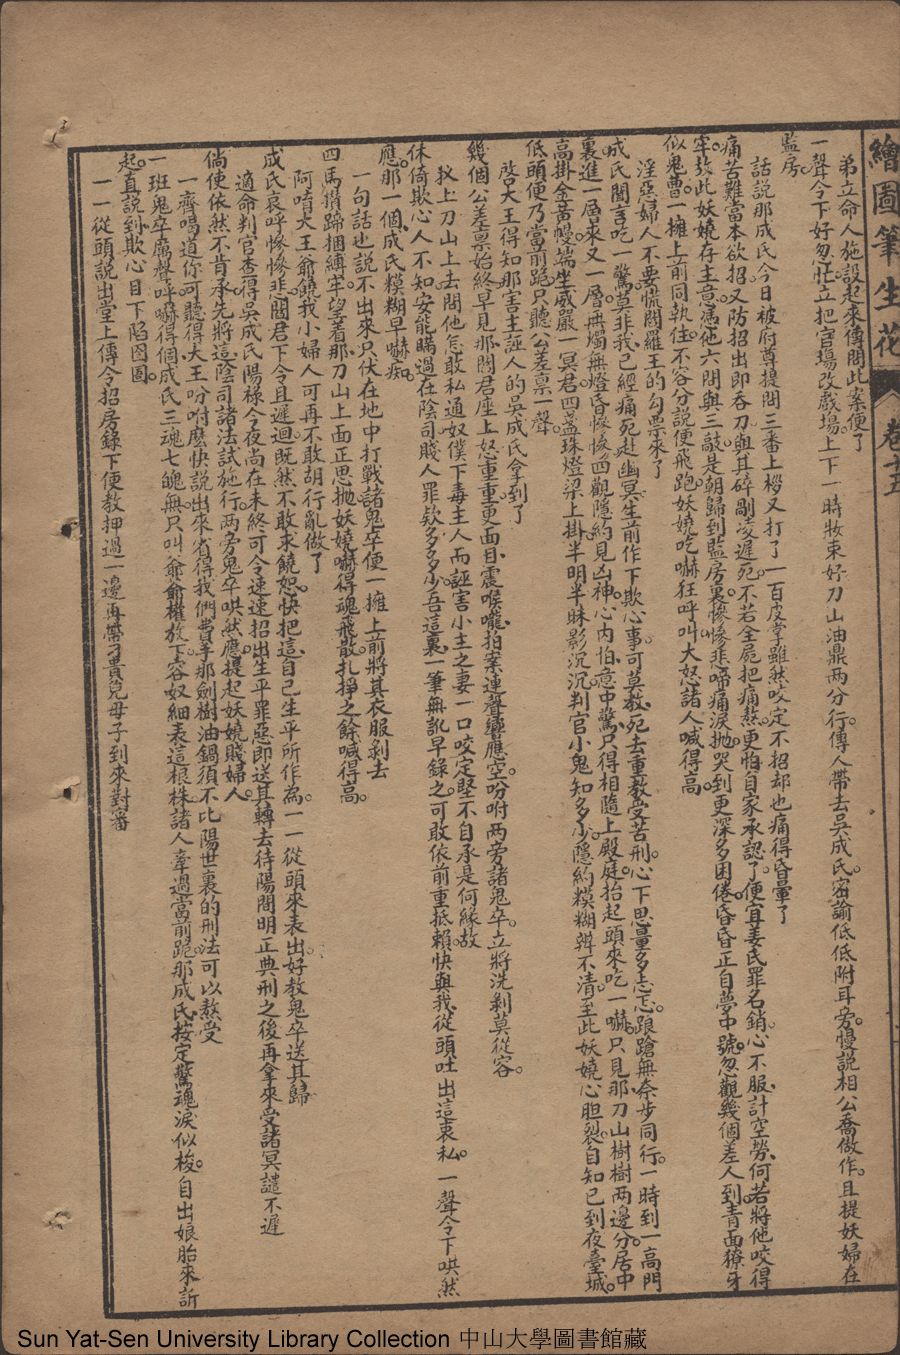 繪圖筆生花 卷十五
弟立命人施設起來傳問此案便了
一聲令下好忽忙立把官塲改戲塲上下一時妝束好刀山油鼎两分行傳人帶去吳成氏密諭低低附耳旁慢説相公喬做作且提妖婦在
監房
話説那成氏今日被府尊提問三番上拶又打了一百皮掌雖然咬定不招却也痛得昏暈了
痛苦難當本欲招又防招出即吞刀與其碎剮凌遲死不若全屍把痛熬更怕自家承認了便宜姜氏罪名銷心不服計空勞何若將他咬得
牢放此妖嬈存主意憑他六問與三敲是朝歸到監房裏惨惨悲啼痛淚抛哭到更深多困倦昏昏正自夢中號忽觀幾個差人到青面獠牙
似鬼曹一擁上前同執住不容分說便飛跑妖嬈吃嚇狂呼叫大怒諸人喊得高
淫惡婦人不要慌閻羅王的勾票來了
成氏聞言吃一驚莫非我已經痛死赴幽冥生前作下欺心事可莫教死去重教受苦刑心下思量多忐忑踉蹌無奈步同行一時到一高門
裏進一層來又一層無燭無燈昏惨惨四觀隱約見凶神心内怕意中驚只得相隨上殿庭抬起頭來吃一嚇只見那刀山樹樹两邊分居中
高掛金黃幔端坐威嚴一冥君四盞珠燈梁上掛半明半昧影沉沉判官小鬼知多少隱約糢糊辨不清至此妖嬈心胆裂自知已到夜臺城
低頭便乃當前跪只聽公差禀一聲
啓大王得知那害主誣人的吳成氏拿到了
幾個公差禀始終早見那閻君座上怒重重更面目震喉嚨拍案連聲響應空吩咐两旁諸鬼卒立將洗剥莫從容
杈上刀山上去問他怎敢私通奴僕下毒主人而誣害小主之妻一口咬定堅不自承是何緣故
休倚欺心人不知安能瞞過在陰司賤人罪欵多多少吾這裏一筆無訛早錄之可敢依前重抵賴快與我從頭吐出這衷私一聲令下哄然
應那一個成氏糢糊早嚇痴
一句話也説不出來只伏在地中打戰諸鬼卒便一擁上前將其衣服剥去
四馬攢蹄捆縛牢望着那刀山上面正思抛妖嬈嚇得魂飛散扎掙之餘喊得高
阿唷大王爺饒我小婦人可再不敢胡行亂做了
成氏哀呼惨惨悲閻君下令且遲迴既然不敢求饒恕快把這自己生平所作為一一從頭來表出好教鬼卒送其歸
適命判官查得吳成氏陽禄今夜尚在未終可令速速招出生平罪惡即送其轉去待陽間明正典刑之後再拿來受諸冥譴不遲
倘使依然不肯承先將這陰司諸法試施行两旁鬼卒哄然應提起妖嬈賤婦人
一齊喝道你可聽得大王吩咐麽快説出來省得我們費事那劍樹油鍋須不比陽世裏的刑法可以熬受
一班鬼卒厲聲呼嚇得個成氏三魂七魄無只叫爺爺權放下容奴細表這根株諸人牽過當前跪那成氏按定驚魂淚似梭自出娘胎來訴
起直説到欺心目下陷囹圄
一一從頭説出堂上傳令招房錄下便教押過一邊再帶刁貴兒母子到來對審
Sun Yat-Sen University Library Collection 中山大學圖書館藏